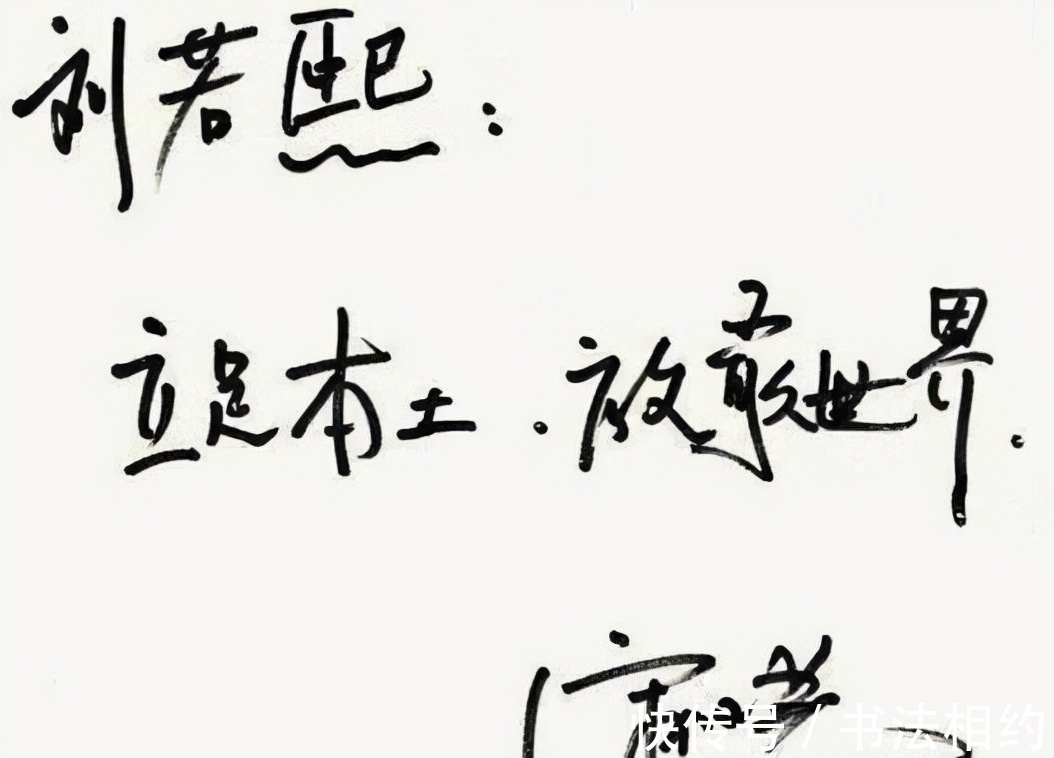 刘若熙：
立足本土.放敢世界.
快传号 / 书法相约